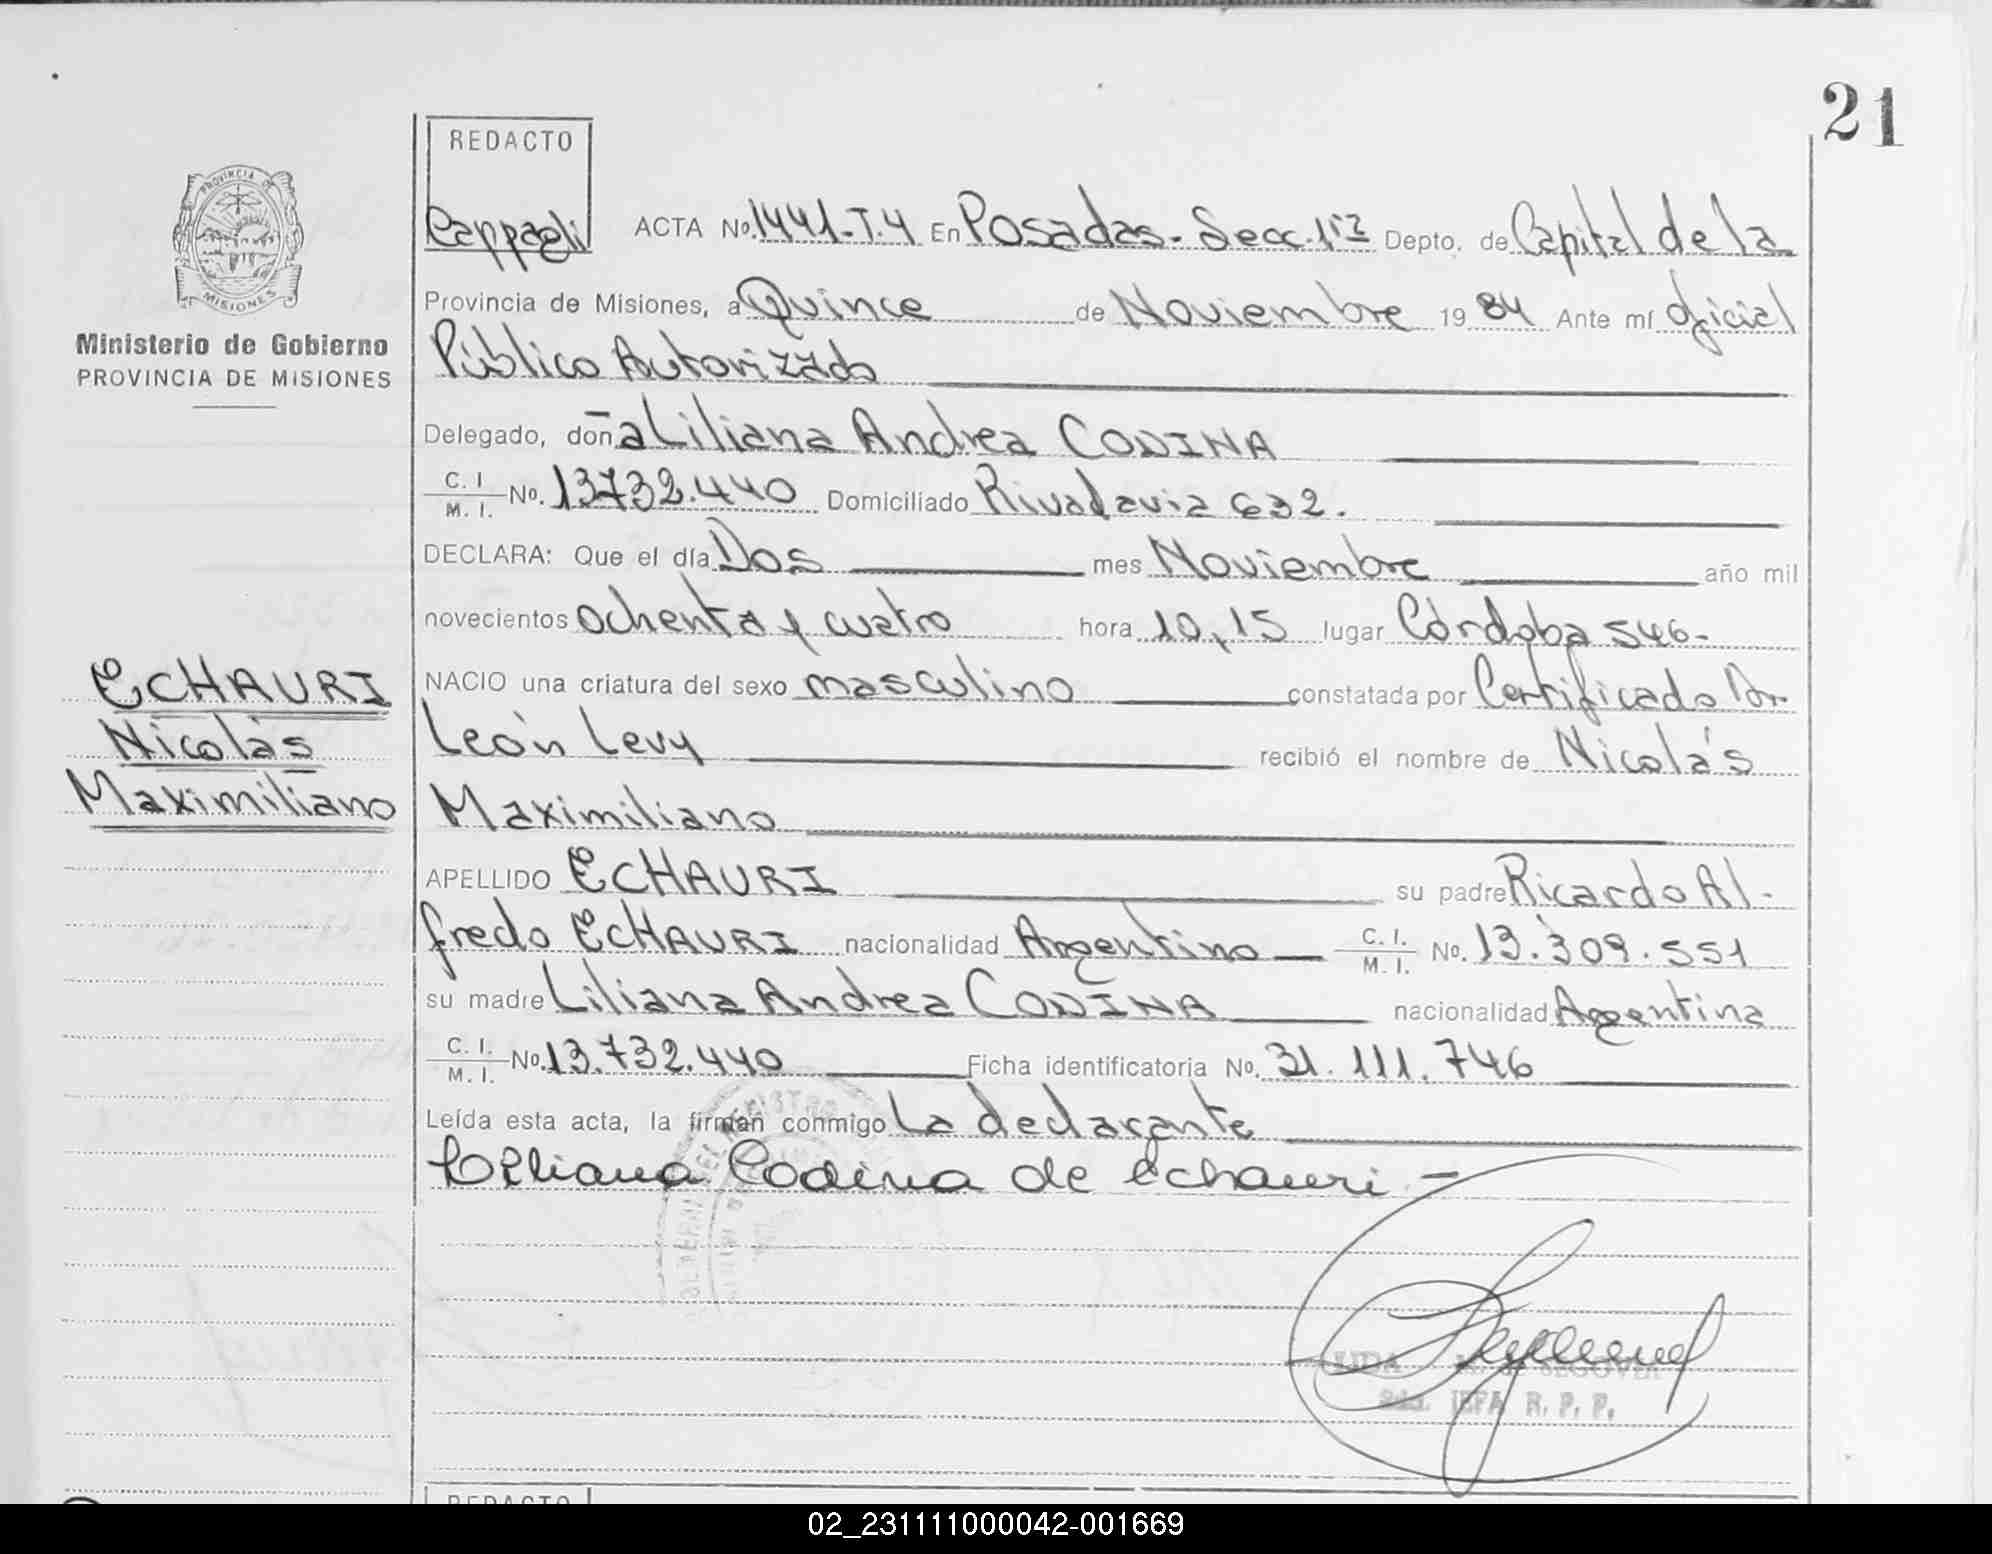 21
REDACTO
Cappagli
PROVINCIA DE
MISIONES
Ministerio de Gobierno
PROVINCIA DE MISIONES
ACTA No. 1441-T.4 En Posadas - Secc. 1ra Depto. de Capital de la
Provincia de Misiones, a Quince de Noviembre 1984 Ante mí Oficial
Público Autorizado
Delegado, doña Liliana Andrea CODINA
C. I. M. I. No. 13732.440 Domiciliado Rivadavia 632.
DECLARA: Que el día Dos mes Noviembre año mil
novecientos ochenta y cuatro hora 10,15 lugar Córdoba 546-
ECHAURI
Nicolás
Maximiliano
NACIO una criatura del sexo masculino constatada por Certificado Dr.
León Levy recibió el nombre de Nicolás
Maximiliano
APELLIDO ECHAURI su padre Ricardo Al-
fredo ECHAURI nacionalidad Argentino C. I. M. I. No. 13.309.551
su madre Liliana Andrea CODINA nacionalidad Argentina
C. I. M. I. No. 13.732.440 Ficha identificatoria No. 31.111.746
Leída esta acta, la firman conmigo La declarante
Liliana Codina de Echauri -
LIDA SEGOVIA
2da. JEFA R. P. P.
REDACTO
02_231111000042-001669